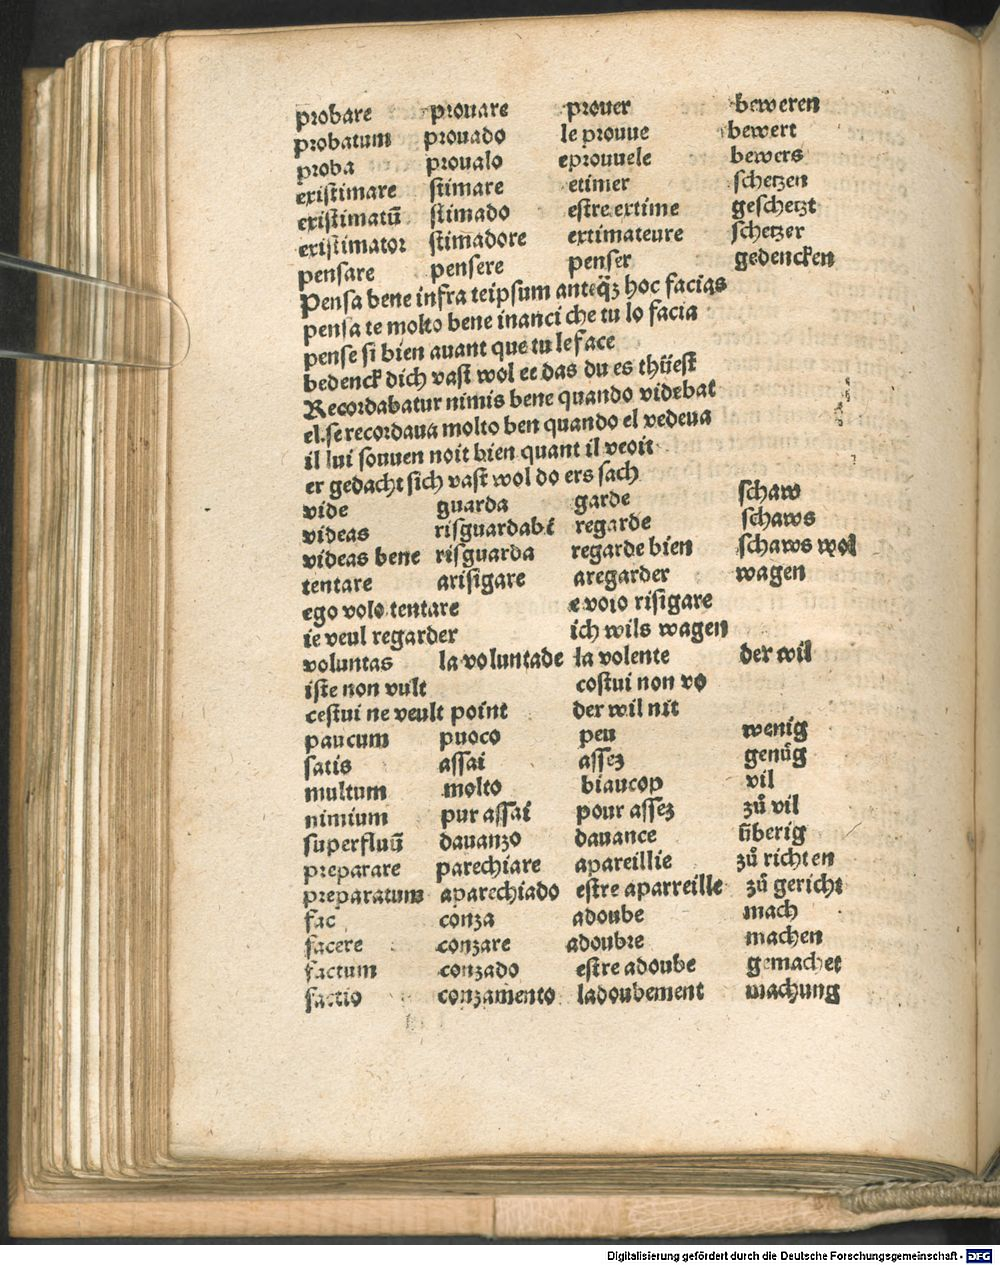 probare prouare prouer beweren
probatum prouado le prouue bewert
proba proualo eprouuele bewers
existimare stimare etimer schetzen
existimatū stimado estre extime geschetzt
existimator stimadore extimateure schetzer
pensare pensere penser gedencken
Pensa bene infra teipsum anteq̄ꝫ hoc facias
pensa te molto bene inanci che tu lo facia
pense si bien auant que tu le face
bedenck dich vast wol ee das du es thüest
Recordabatur nimis bene quando videbat
el.se recordaua molto ben quando el vedeua
il lui souuen noit bien quant il veoit
er gedacht sich vast wol do ers sach
vide guarda garde schaw
videas risguardabi regarde schaws
videas bene risguarda regarde bien schaws wol
tentare arisigare aregarder wagen
ego volo tentare e voio risigare
ie veul regarder ich wils wagen
voluntas la voluntade la volente der wil
iste non vult costui non vo
cestui ne veult point der wil nit
paucum puoco peu wenig
satis assai assez genůg
multum molto biaucop vil
nimium pur assai pour assez zů vil
superfluū dauanzo dauance ůberig
preparare parechiare apareillie zů richten
preparatum aparechiado estre aparreille zů gericht
fac conza adoube mach
facere conzare adoubre machen
factum conzado estre adoube gemachet
factio conzamento ladoubement machung
Digitalisierung gefördert durch die Deutsche Forschungsgemeinschaft - DFG